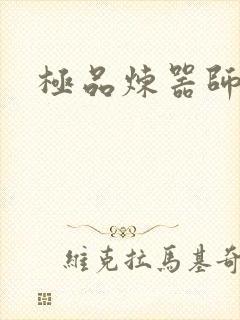 極品煉器師
維克拉馬基奇